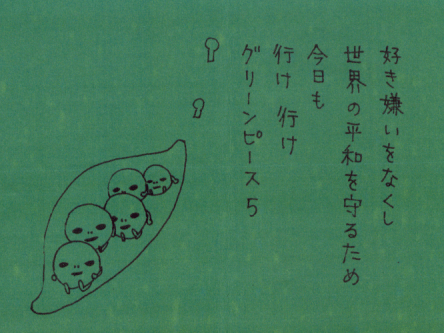 好き嫌いをなくし
世界の平和を守るため
今日も
行け 行け
グリーンピース5